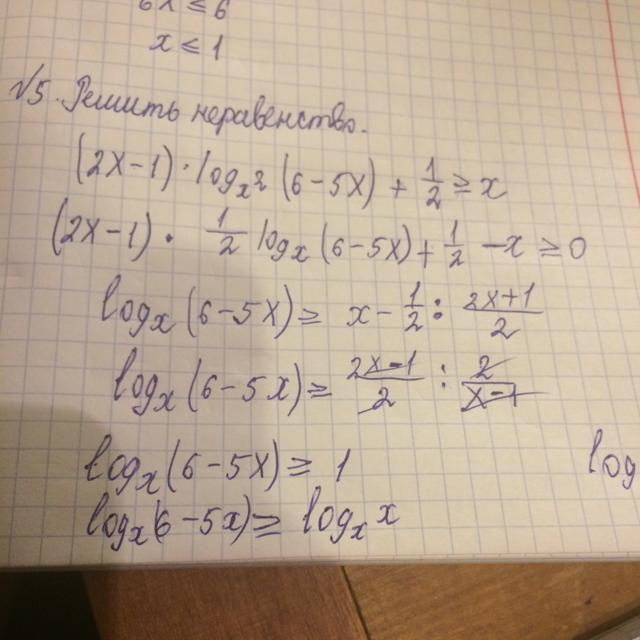 6x ≤ 6
x ≤ 1
№5. Решить неравенство.
(2x-1)·log_{x²}(6-5x) + 1/2 ≥ x
(2x-1)· 1/2 log_x(6-5x) + 1/2 - x ≥ 0
log_x(6-5x) ≥ x - 1/2 : (2x+1)/2
log_x(6-5x) ≥ (2x-1)/2 : 2/(x-1)
log_x(6-5x) ≥ 1 log
log_x(6-5x) ≥ log_x x